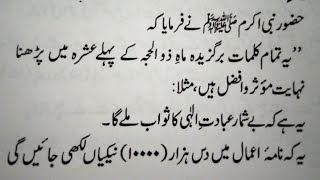 حضور نبی اکرم ﷺ نے فرمایا کہ
”یہ تمام کلمات برگزیدہ ماہِ ذوالحجہ کے پہلے عشرہ میں پڑھنا
نہایت مؤثر و افضل ہیں، مثلا:
یہ ہے کہ بے شمار عبادتِ الٰہی کا ثواب ملے گا۔
یہ کہ نامۂ اعمال میں دس ہزار (۱۰۰۰۰) نیکیاں لکھی جائیں گی